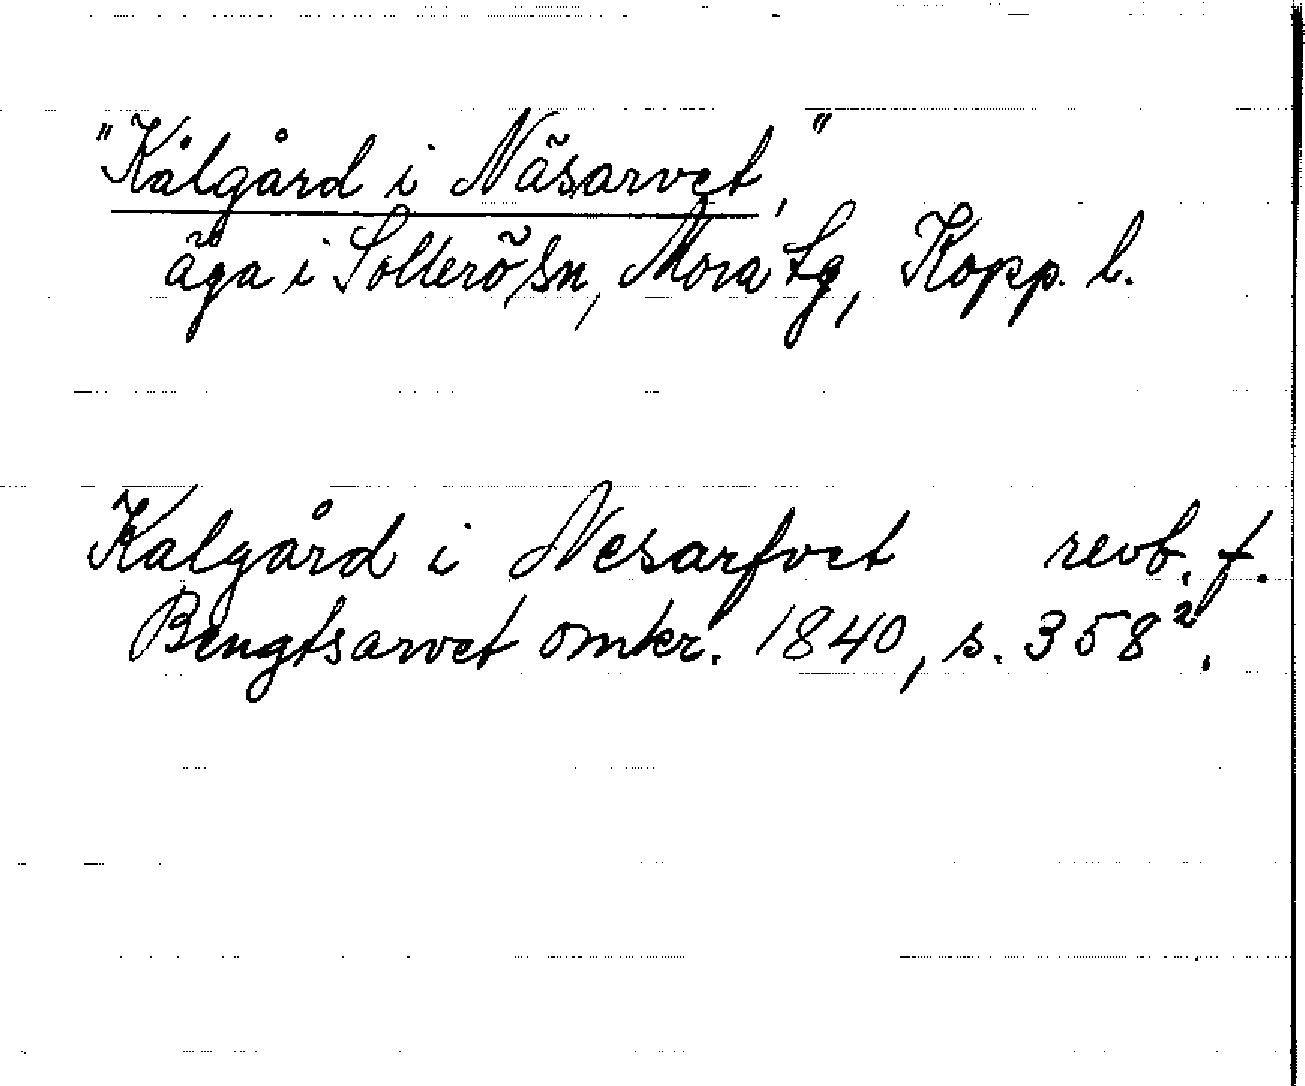 "Kålgård i Näsarvet,"
äga i Sollerö sn, Mora tg, Kopp. l.
Kalgård i Nesarfvet revb. f.
Bengtsarvet omkr. 1840, s. 358².